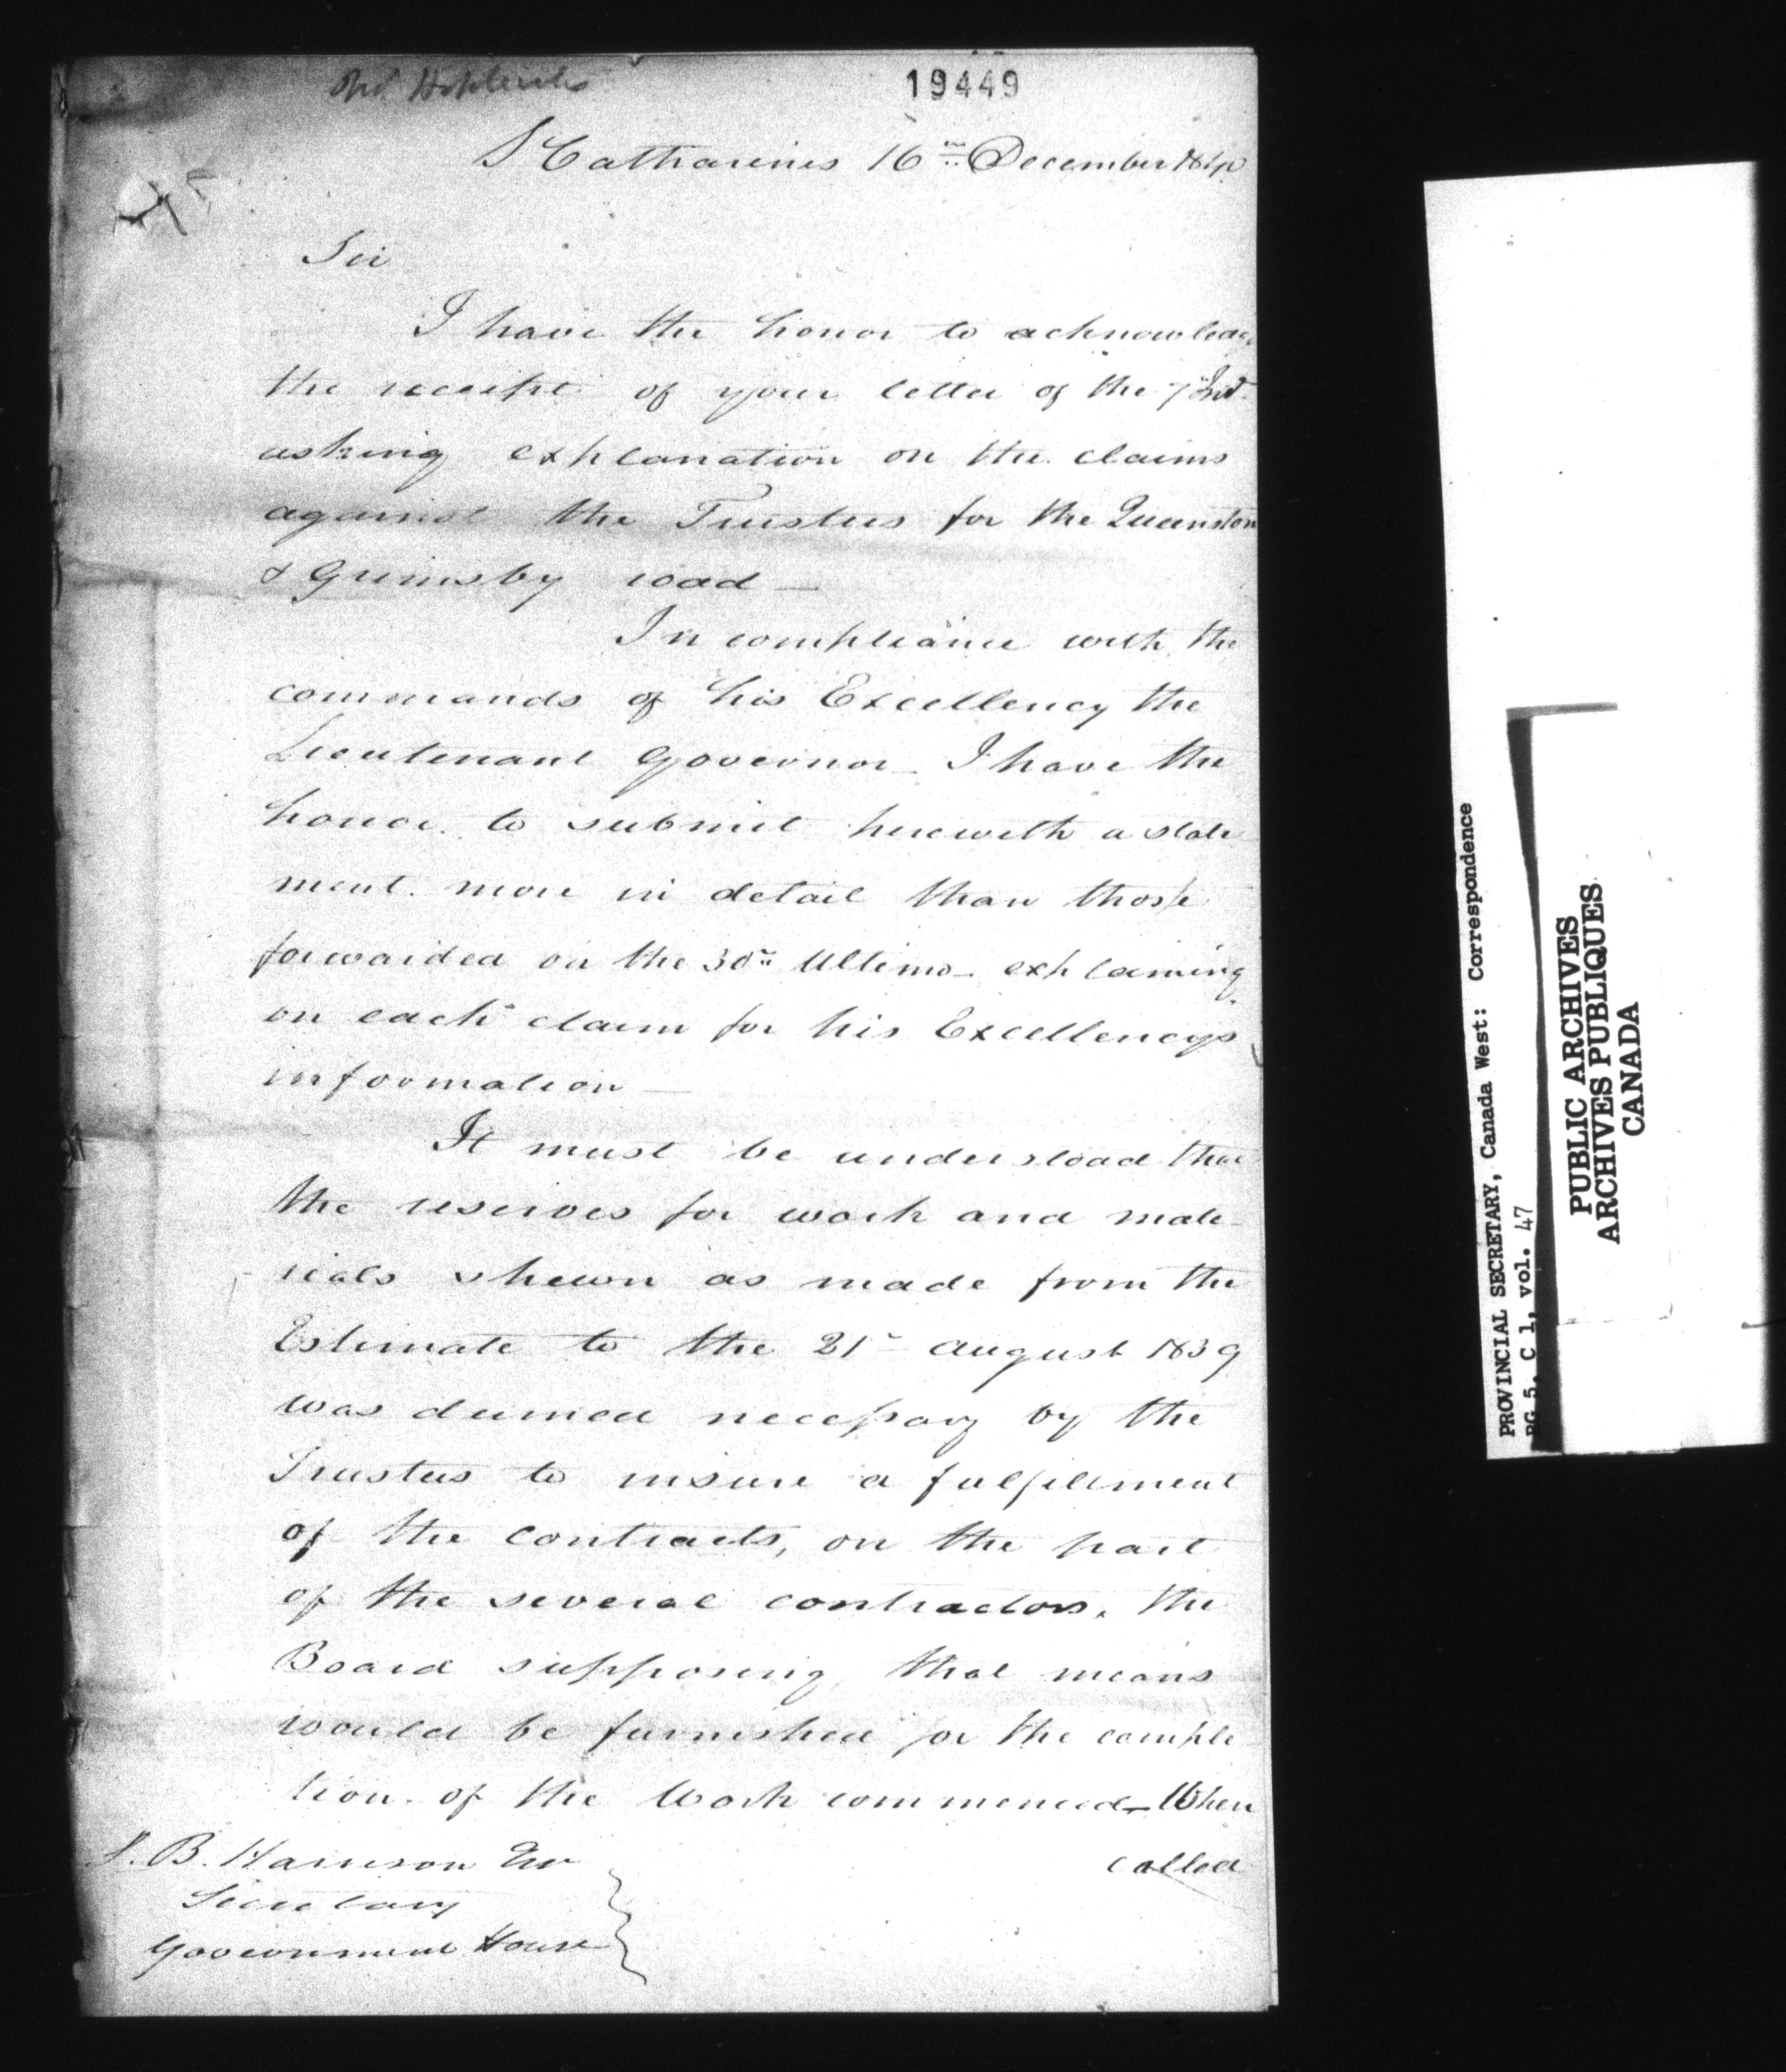 19449
St Catharines 16th December 1840
Sir
I have the honor to acknowledge
the receipt of your letter of the 7th Inst.
asking explanation on the claims
against the Trustees for the Queenston
& Grimsby road —
In compliance with the
commands of his Excellency the
Lieutenant Governor — I have the
honor to submit herewith a state
ment more in detail than those
forwarded on the 30th Ultimo — explaining
on each claim for his Excellencys
information —
It must be understood that
the reserves for work and mate-
rials shewn as made from the
Estimate to the 21st August 1839
was deemed necessary by the
Trustees to insure a fulfillment
of the contracts, on the part
of the several contractors, the
Board supposing that means
would be furnished for the comple
tion of the Work commenced — When
called
S. B. Harrison Esqr
Secretary
Government House
PROVINCIAL SECRETARY, Canada West: Correspondence
RG 5, C 1, vol. 47
PUBLIC ARCHIVES
ARCHIVES PUBLIQUES
CANADA